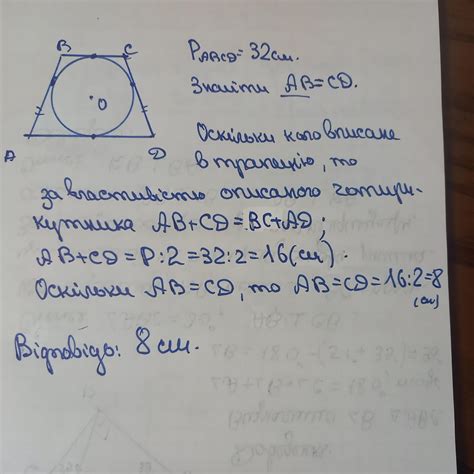 B C
P ABCD = 32см.
Знайти AB=CD.
O
A D
Оскільки коло вписане
в трапецію, то
за властивістю описаного чотири-
кутника AB+CD=BC+AD;
AB+CD=P:2=32:2=16(см).
Оскільки AB=CD, то AB=CD=16:2=8
(см)
Відповідь: 8 см.